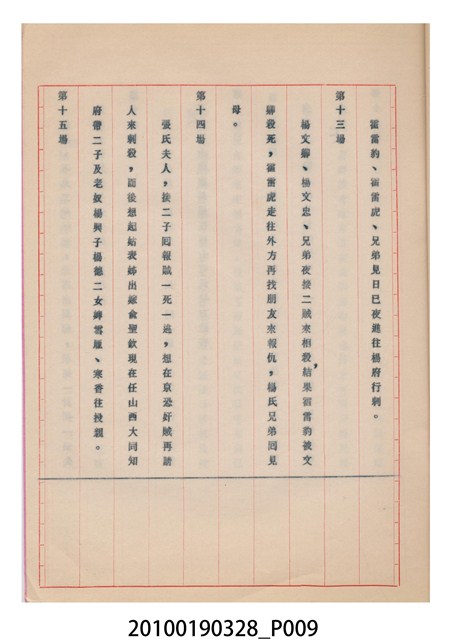 霍雷豹、霍雷虎、兄弟見日已夜進往楊府行刺。
第十三場
楊文麟、楊文忠、兄弟夜接二賊來相殺，結果霍雷豹被文
麟殺死，霍雷虎走往外方再找朋友來報仇，楊氏兄弟回見
母。
第十四場
張氏夫人，接二子回報賊一死一逃，想在京恐奸賊再請
人來刺殺，回後想起姑表姊出嫁俞聖欽現在任山西大同知
府帶二子及老奴楊興子楊德二女婢雪雁、寒香往投親。
第十五場
20100190328_P009